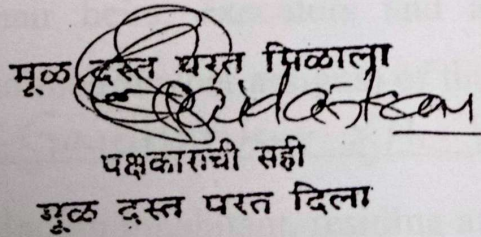 मूळ दस्त परत मिळाला
पक्षकाराची सही
मूळ दस्त परत दिला